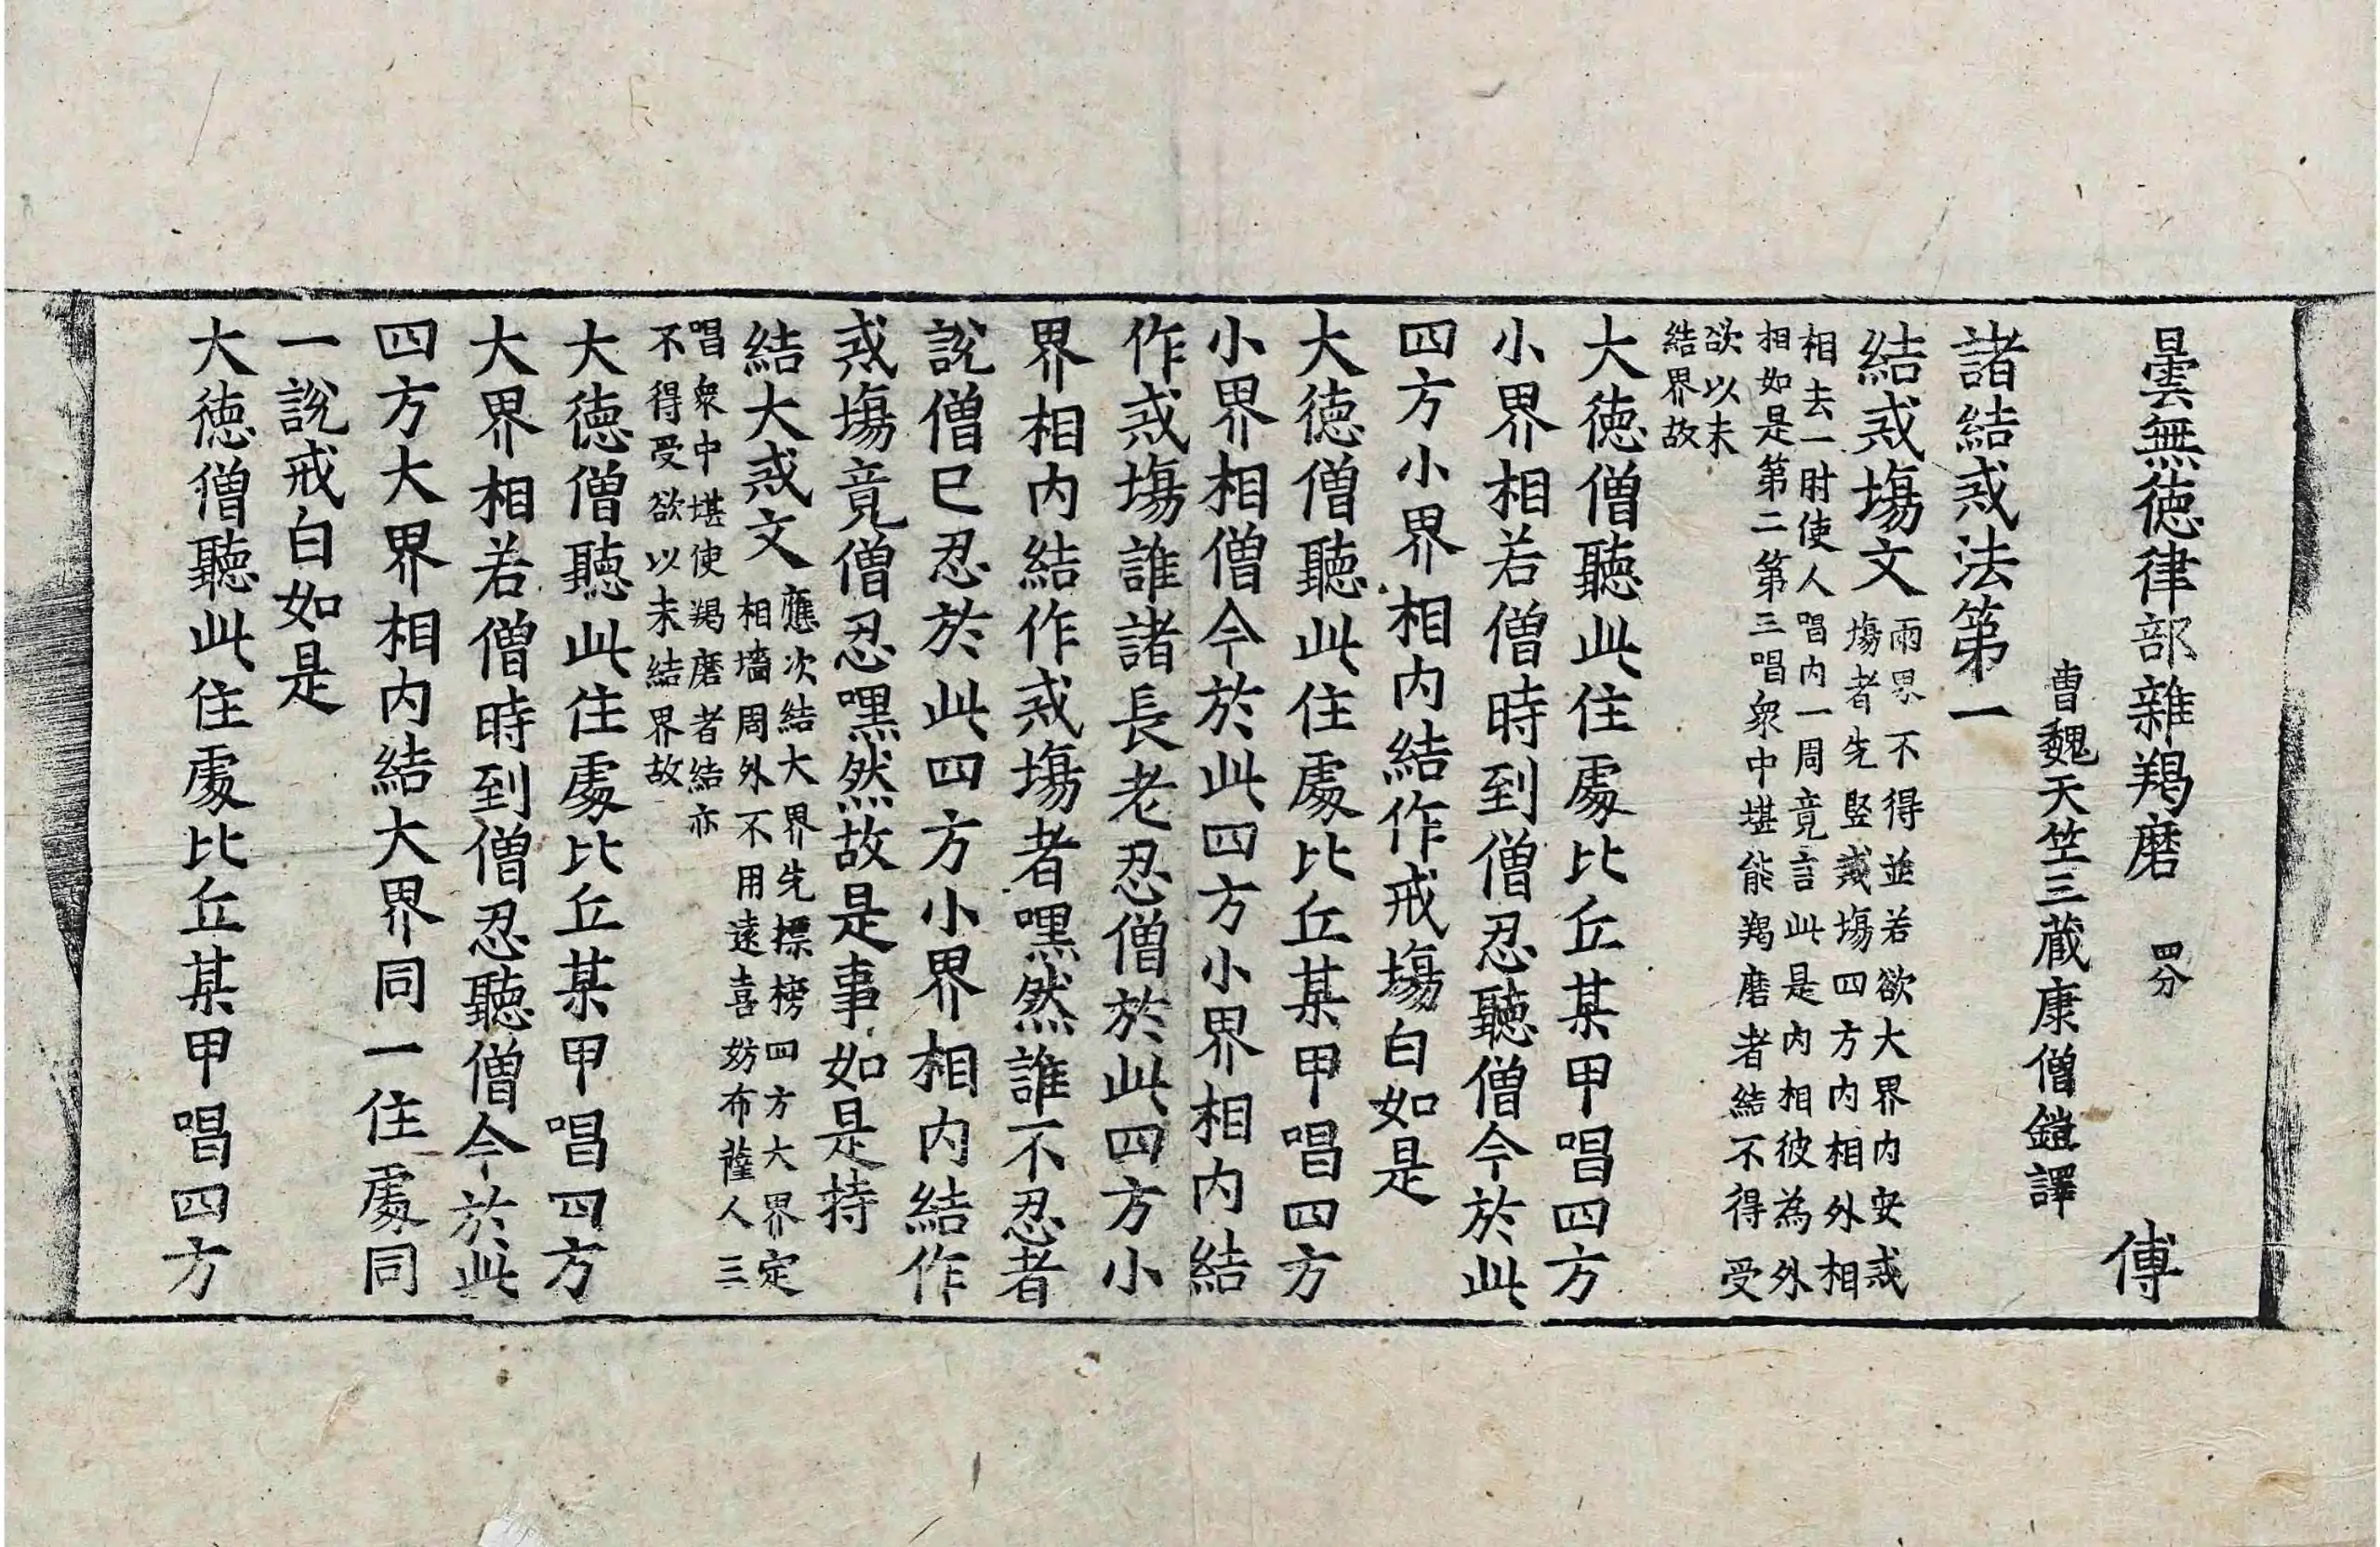 曇無德律部雜羯磨 四分 傅
曹魏天竺三藏康僧鎧譯
諸結戒法第一
結戒塲文
兩界不得並若欲大界内安戒
塲者先竪戒塲四方内相外相
相去一肘使人唱内一周竟言此是内相彼為外
相如是第二第三唱衆中堪能羯磨者結不得受
欲以未
結界故
大德僧聽此住處比丘某甲唱四方
小界相若僧時到僧忍聽僧今於此
四方小界相内結作戒塲白如是
大德僧聽此住處比丘某甲唱四方
小界相僧今於此四方小界相内結
作戒塲誰諸長老忍僧於此四方小
界相内結作戒塲者嘿然誰不忍者
說僧已忍於此四方小界相内結作
戒塲竟僧忍嘿然故是事如是持
結大戒文
應次結大界先摽榜四方大界定
相墻周外不用遠喜妨布薩人三
唱衆中堪使羯磨者結亦
不得受欲以未結界故
大德僧聽此住處比丘某甲唱四方
大界相若僧時到僧忍聽僧今於此
四方大界相内結大界同一住處同
一說戒白如是
大德僧聽此住處比丘某甲唱四方